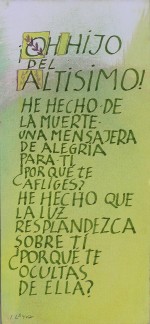 OH HIJO
DEL
ALTISIMO!
HE HECHO DE
LA MUERTE
UNA MENSAJERA
DE ALEGRIA
PARA TI
¿PORQUE TE
AFLIGES?
HE HECHO QUE
LA LUZ
RESPLANDEZCA
SOBRE TI
¿PORQUE TE
OCULTAS
DE ELLA?